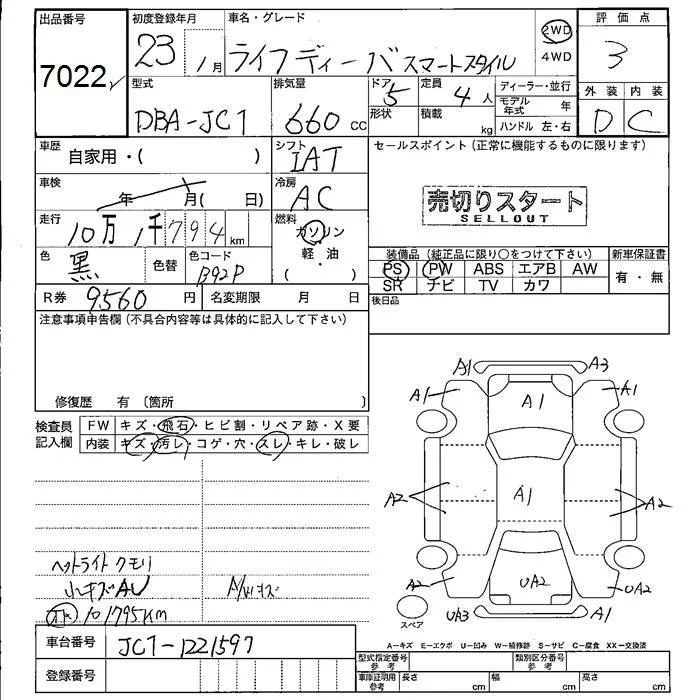 出品番号 初度登録年月 車名・グレード 評価点
7022 23 / 月 ライフ ディーバ スマートスタイル 2WD 4WD 3
型式 排気量 ドア 定員 ディーラー・並行 外装 内装
DBA-JC1 660 CC 5 4 人 モデル年式 年 D C
形状 積載 kg ハンドル 左・右
車歴 自家用・( ) シフト IAT セールスポイント (正常に機能するものに限ります)
車検 年 月( 日) 冷房 AC
売切りスタート
SELLOUT
走行 10万 1千794 km 燃料 ガソリン
軽・油
( )
色 黒 色替 色コード B92P
装備品 (純正品に限り○をつけて下さい) 新車保証書
PS PW ABS エアB AW 有・無
SR ナビ TV カワ
R券 9560 円 名変期限 月 日 後日品
注意事項申告欄 (不具合内容等は具体的に記入して下さい)
修復歴 有 〔箇所 〕
検査員記入欄 FW キズ・飛石・ヒビ割・リペア跡・X要
内装 キズ・汚レ・コゲ・穴・スレ・キレ・破レ
A1 A3
A1 A1 A1
A2 A1 A2
A2 UA2 UA2
UA3 A1
スペア
ヘットライト クモリ
小キズAU
101795KM
A-キズ E-エクボ U-凹み W-補修跡 S-サビ C-腐食 XX-交換済
車台番号 JC1-1221597
型式指定番号 参考 類別区分番号 参考
登録番号 車庫証明用 参考 長さ cm 幅 cm 高さ cm